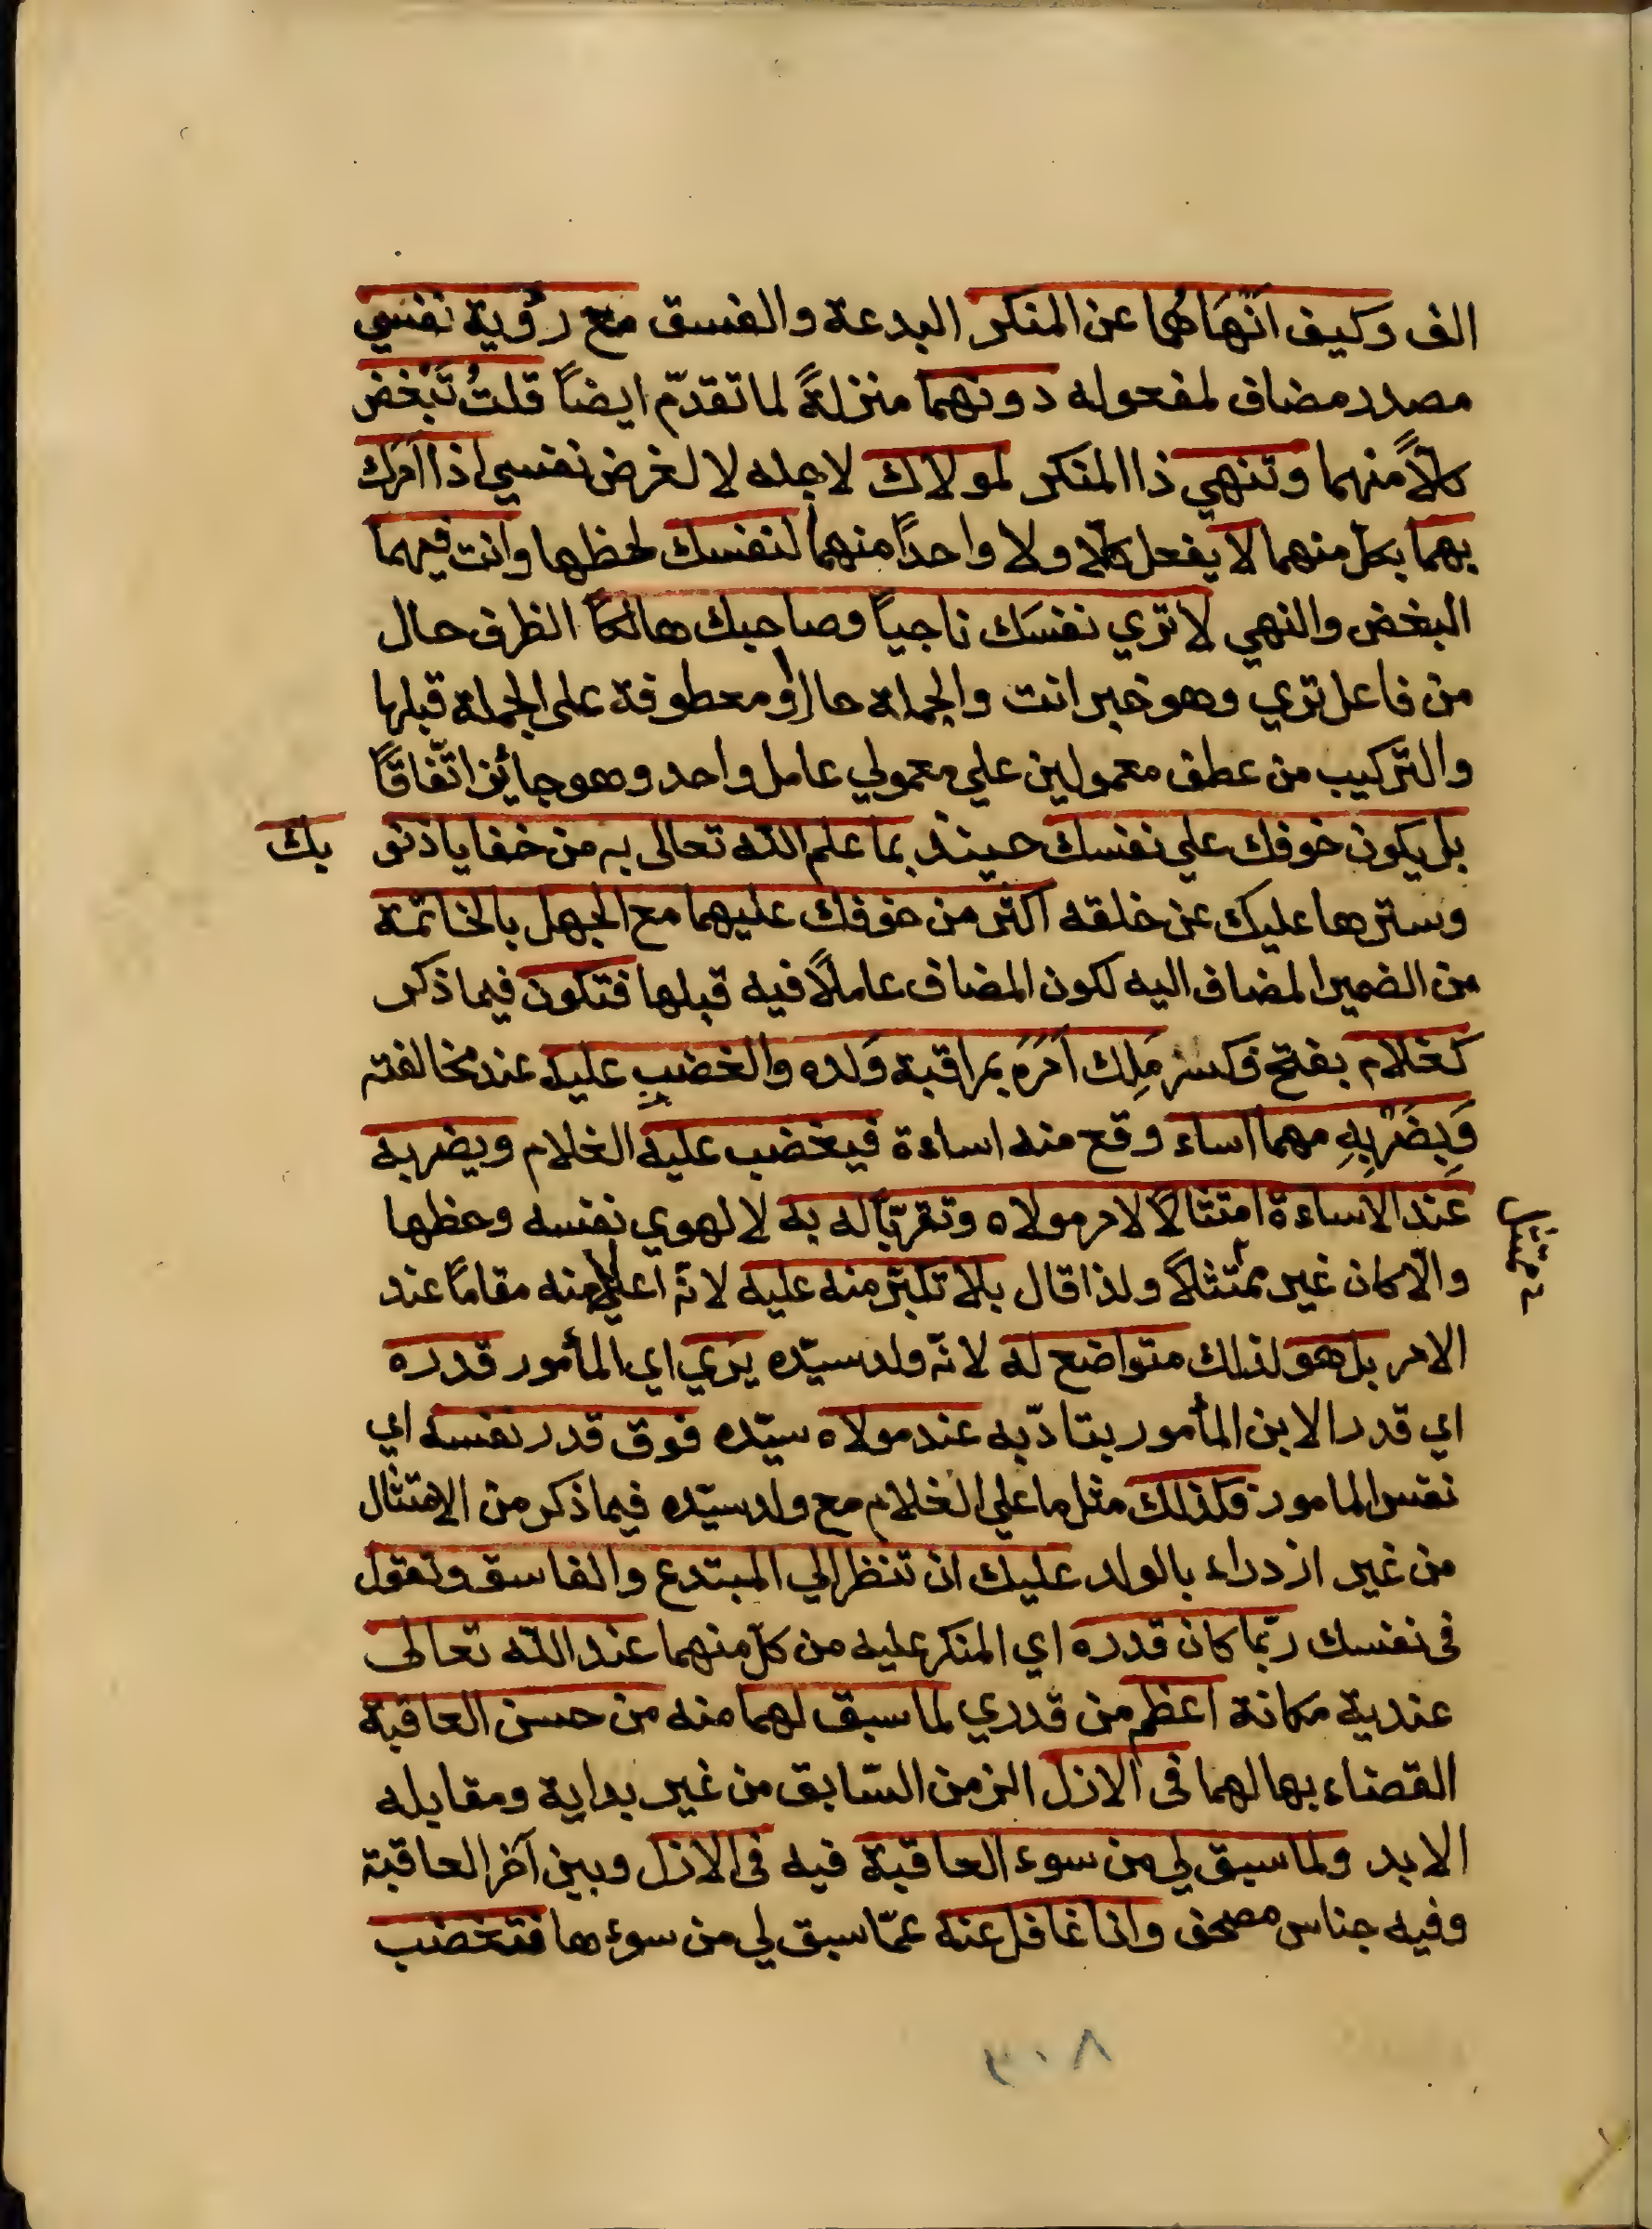 الف وكيف انْهَاهُما عن المنكر البدعة والفسق مع رؤية نفسي
مصدر مضاف لمفعوله دونهما منزلةً لما تقدّم ايضاً قلتُ تَبْغض
كلاًّ منهما وتنهي ذا المنكر لمولاك لاجله لا لغرض نفسي اذا امرك
بهما بكل منهما لا يفعل كلا ولا واحدًا منهما لنفسك لحظها وانت فيهما
البغض والنهي لا تري نفسَك ناجياً وصاحبك هالكاً الظرف حال
من فاعل تري وهو خبر انت والجملة حال او معطوفة على الجملة قبلها
والتركيب من عطف معمولين علي معمولي عامل واحد وهو جائز اتّفاقاً
بل يكون خوفك علي نفسك حينئذ بما علم الله تعالى به من خفايا ذنو بك
وسترها عليك عن خلقه اكثر من خوفك عليهما مع الجهل بالخاتمة
من الضمير المضاف اليه لكون المضاف عاملاً فيه قبلها فتكون فيما ذكر
كغلام بفتح فكسر مَلِك اَمَرَه بمراقبة وَلده والغضبِ عليه عند مخالفته
وَبِضَرْبِهِ مهما اساء وقع منه اساءة فيغضب عليه الغلام ويضربه
عند الاساءة امتثالاً لامر مولاه وتقرّباً له به لا لهوي نفسه وحظها
والّا كان غير ممتثلاً ولذا قال بلا تكبّر منه عليه لانّه اعلي منه مقاماً عند
الامر بل هو لذلك متواضع له لانّه ولد سيّده يَرَي اي المأمور قدره
اي قدر الابن المأمور بتادّبه عند مولاه سيّده فوق قدر نفسه اي
نفس المامور فكذلك مثل ما علي الغلام مع ولد سيّده فيما ذكر من الامتثال
من غير ازدراء بالولد عليك ان تنظر الي المبتدع والفاسق وتقول
فى نفسك ربّما كان قدره اي المنكر عليه من كلّ منهما عند الله تعالى
عندية مكانة اعظم من قدري لما سبق لهما منه من حسن العاقبة
القضاء بها لهما فى الازل الزمن السّابق من غير بداية ومقابله
الابد ولما سبق لي من سوء العاقبة فيه فى الازل وبين آخر العاقبة
وفيه جناس مصحف وانا غافل عنه عمّا سبق لي من سوءها فتغضب
٣٠٨